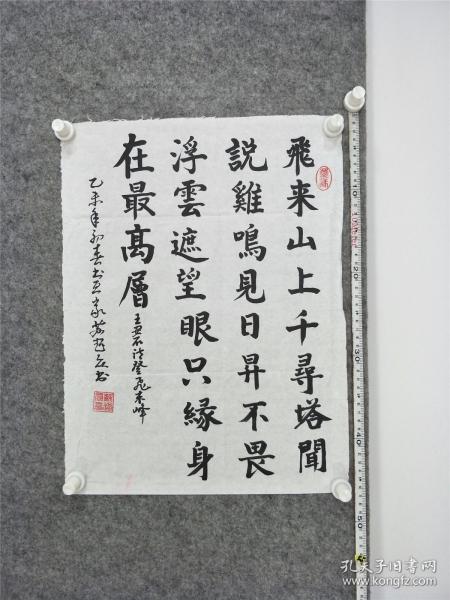 飛来山上千尋塔聞
説雞鳴見日昇不畏
浮雲遮望眼只緣身
在最高層
王安石詩登飛来峰
乙未年初春書
孔夫子旧书网
www.kongfz.com